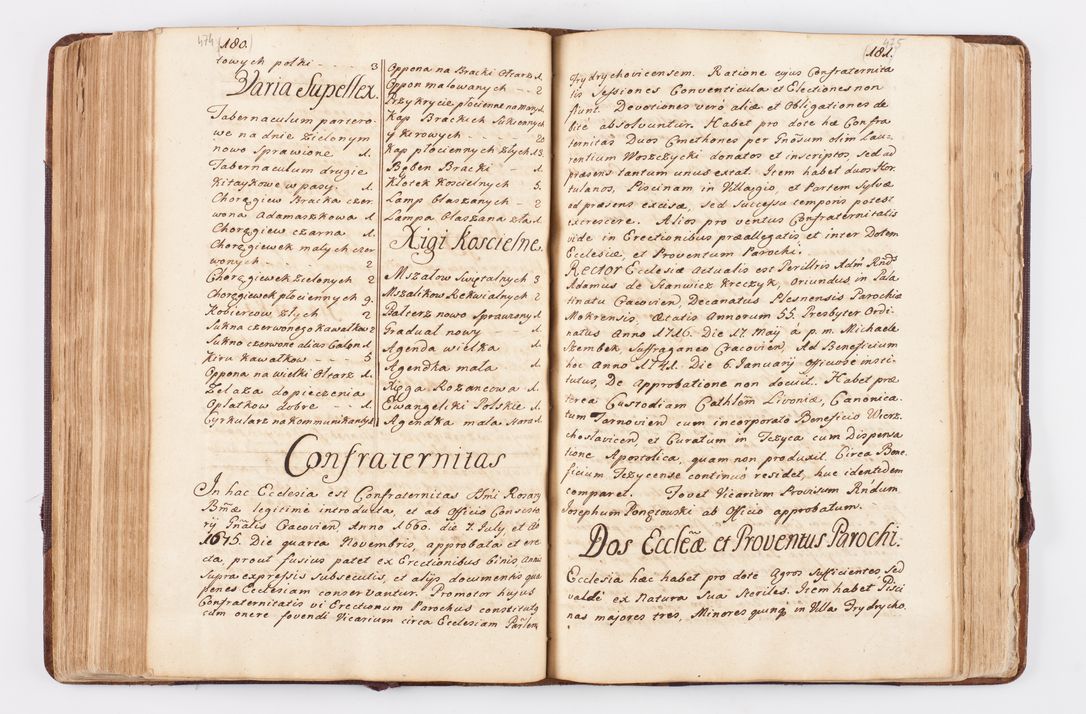 474 (180.)
towych potki - - - - 3
Varia Supellex.
Tabernaculum partero
we na dnie zielonym
nowo sprawione 1.
Tabernaculum drugie
Kitaykowe w pasy. 1.
Chorągiew Bracka czer
wona Adamaszkowa 1
Chorągiew czarna 1.
Chorągiewek małych czer
wonych - - 2
Chorągiewek zielonych 2
Chorągiewek płociennych 9.
Kobiercow złych 2
Sukna czerwonego Kawałkow 2
Sukno czerwone alias Calon 1
Kiru Kawałkow - - 5
Oppona na wielki Ołtarz 1.
Zelaza do pieczenia
Opłatkow dobre - 1.
Cyrkularz na kommunikanty 1.
Oppona na Bracki Ołtarz 1.
Oppon malowanych - - 2
Przykrycie płocienne na mary 1.
Kap Brackich Sukiennych
y kirowych - - 20
Kap płociennych złych 13.
Bęben Bracki - 1.
Klotek Koscielnych 5.
Lamp Blaszanych - 2
Lampa Blaszana zła 1.
Xięgi Koscielne.
Mszałow Swiętalnych 3
Mszalikow Rekwialnych 2
Psałterz nowo Sprawzony 1
Graduał nowy - 1.
Agenda wielka 1.
Agendka mała 1.
Xięga Rozancowa 1.
Ewangeliki Polskie 1.
Agendka mala stara 1.
Confraternitas
In hac Ecclesia est Confraternitas SSmi Rosary
Bmæ legitimè introducta, et ab Officio Consisto
rij Gnalis Cracovien, Anno 1660. die 7. July, et Ao
1675. Die quarta Novembris, approbata et ere
cta, prout fusius patet ex Erectionibus binis, Annis
supra expressis subsecutis, et alijs documentis quæ
penes Ecclesiam conservantur. Promotor hujus
Confraternitatis vi Erectionum Parochus constitutus
cum onere fovendi Vicarium circa Ecclesiam Parlem
475 (181.)
Frydrychovicensem. Ratione cujus Confraternita
tis Sessiones Conventicula et Electiones non
fiunt. Devotiones verò aliæ et Obligationes de
bitè absolvuntur. Habet pro dote hæ Confra
ternitas Duos Cmethones per Gnosum olim Lau-
rentium Woszczycki donatos et inscriptos, sed ad
præsens tantum unus extat. Item habet duos Hor
tulanos, Piscinam in Villagio, et Partem Sylvæ
ad præsens excisæ, sed successu temporis potest
excrescere. Alios proventus Confraternitatis
vide in Erectionibus præallegatis et inter Dotem
Ecclesiæ, et Proventum Parochi.
Rector Ecclesiæ Actualis est Perillris Adm Rnds
Adamus de Stanwicz Kreczyk, Oriundus in Pala
tinatu Cracovien, Decanatus Plesnensis Parochiæ
Mokrensis, Ætatis Annorum 55. Presbyter Ordi
natus Anno 1716. Die 17 Maij à p. m. Michaele
Szembek Suffraganeo Cracovien, Ad Beneficium
hoc Anno 1741. Die 6. Januarij Officiosè insti
tutus, De Approbatione non docuit. Habet præ
terea Custodiam Cathlem Livoniæ, Canonica
tum Tarnovien cum incorporato Beneficio Wierz
choslavicen, et Curatum in Tezyca cum Dispensa
tione Apostolica, quam non produxit. Circa Bene
ficium Tezycense continuò residet, huc identidem
comparet. Fovet Vicarium Provisum Rndum
Josephum Pongtowski ab Officio approbatum.
Dos Ecclæ et Proventus Parochi.
Ecclesia hæc habet pro dote Agros sufficientes sed
valdè ex Natura sua steriles. Item habet Pisci
nas majores tres, Minores quinq in Villa Frydrycho.